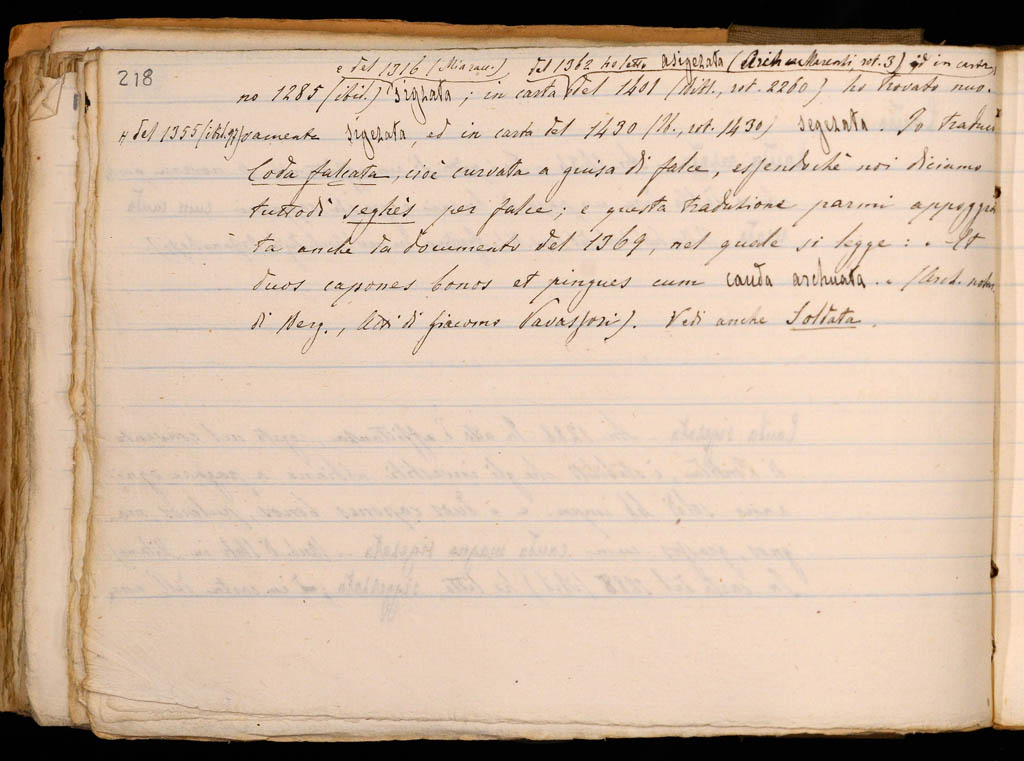 218
e del 1316 (Miarav.) del 1362 ho letto asigezata (Arch. Marenti, rot. 3) ed in carta
no 1285 (ibid.) sigzata; in carta del 1401 (Bibl., rot. 2260) ho trovato nuo-
# del 1355 (ibid.
vamente sigezata, ed in carta del 1430 (Ib., rot. 1430) segezata. Io traduco
Coda falcata, cioè curvata a guisa di falce, essendochè noi diciamo
tuttodì seghès per falce; e questa traduzione parmi appoggia
ta anche da documento del 1369, nel quale si legge: „ - Et
duos capones bonos et pingues cum cauda archuata. „ (Arch. notar.
di Berg., Atti di Giacomo Vavassori). Vedi anche Soldata.